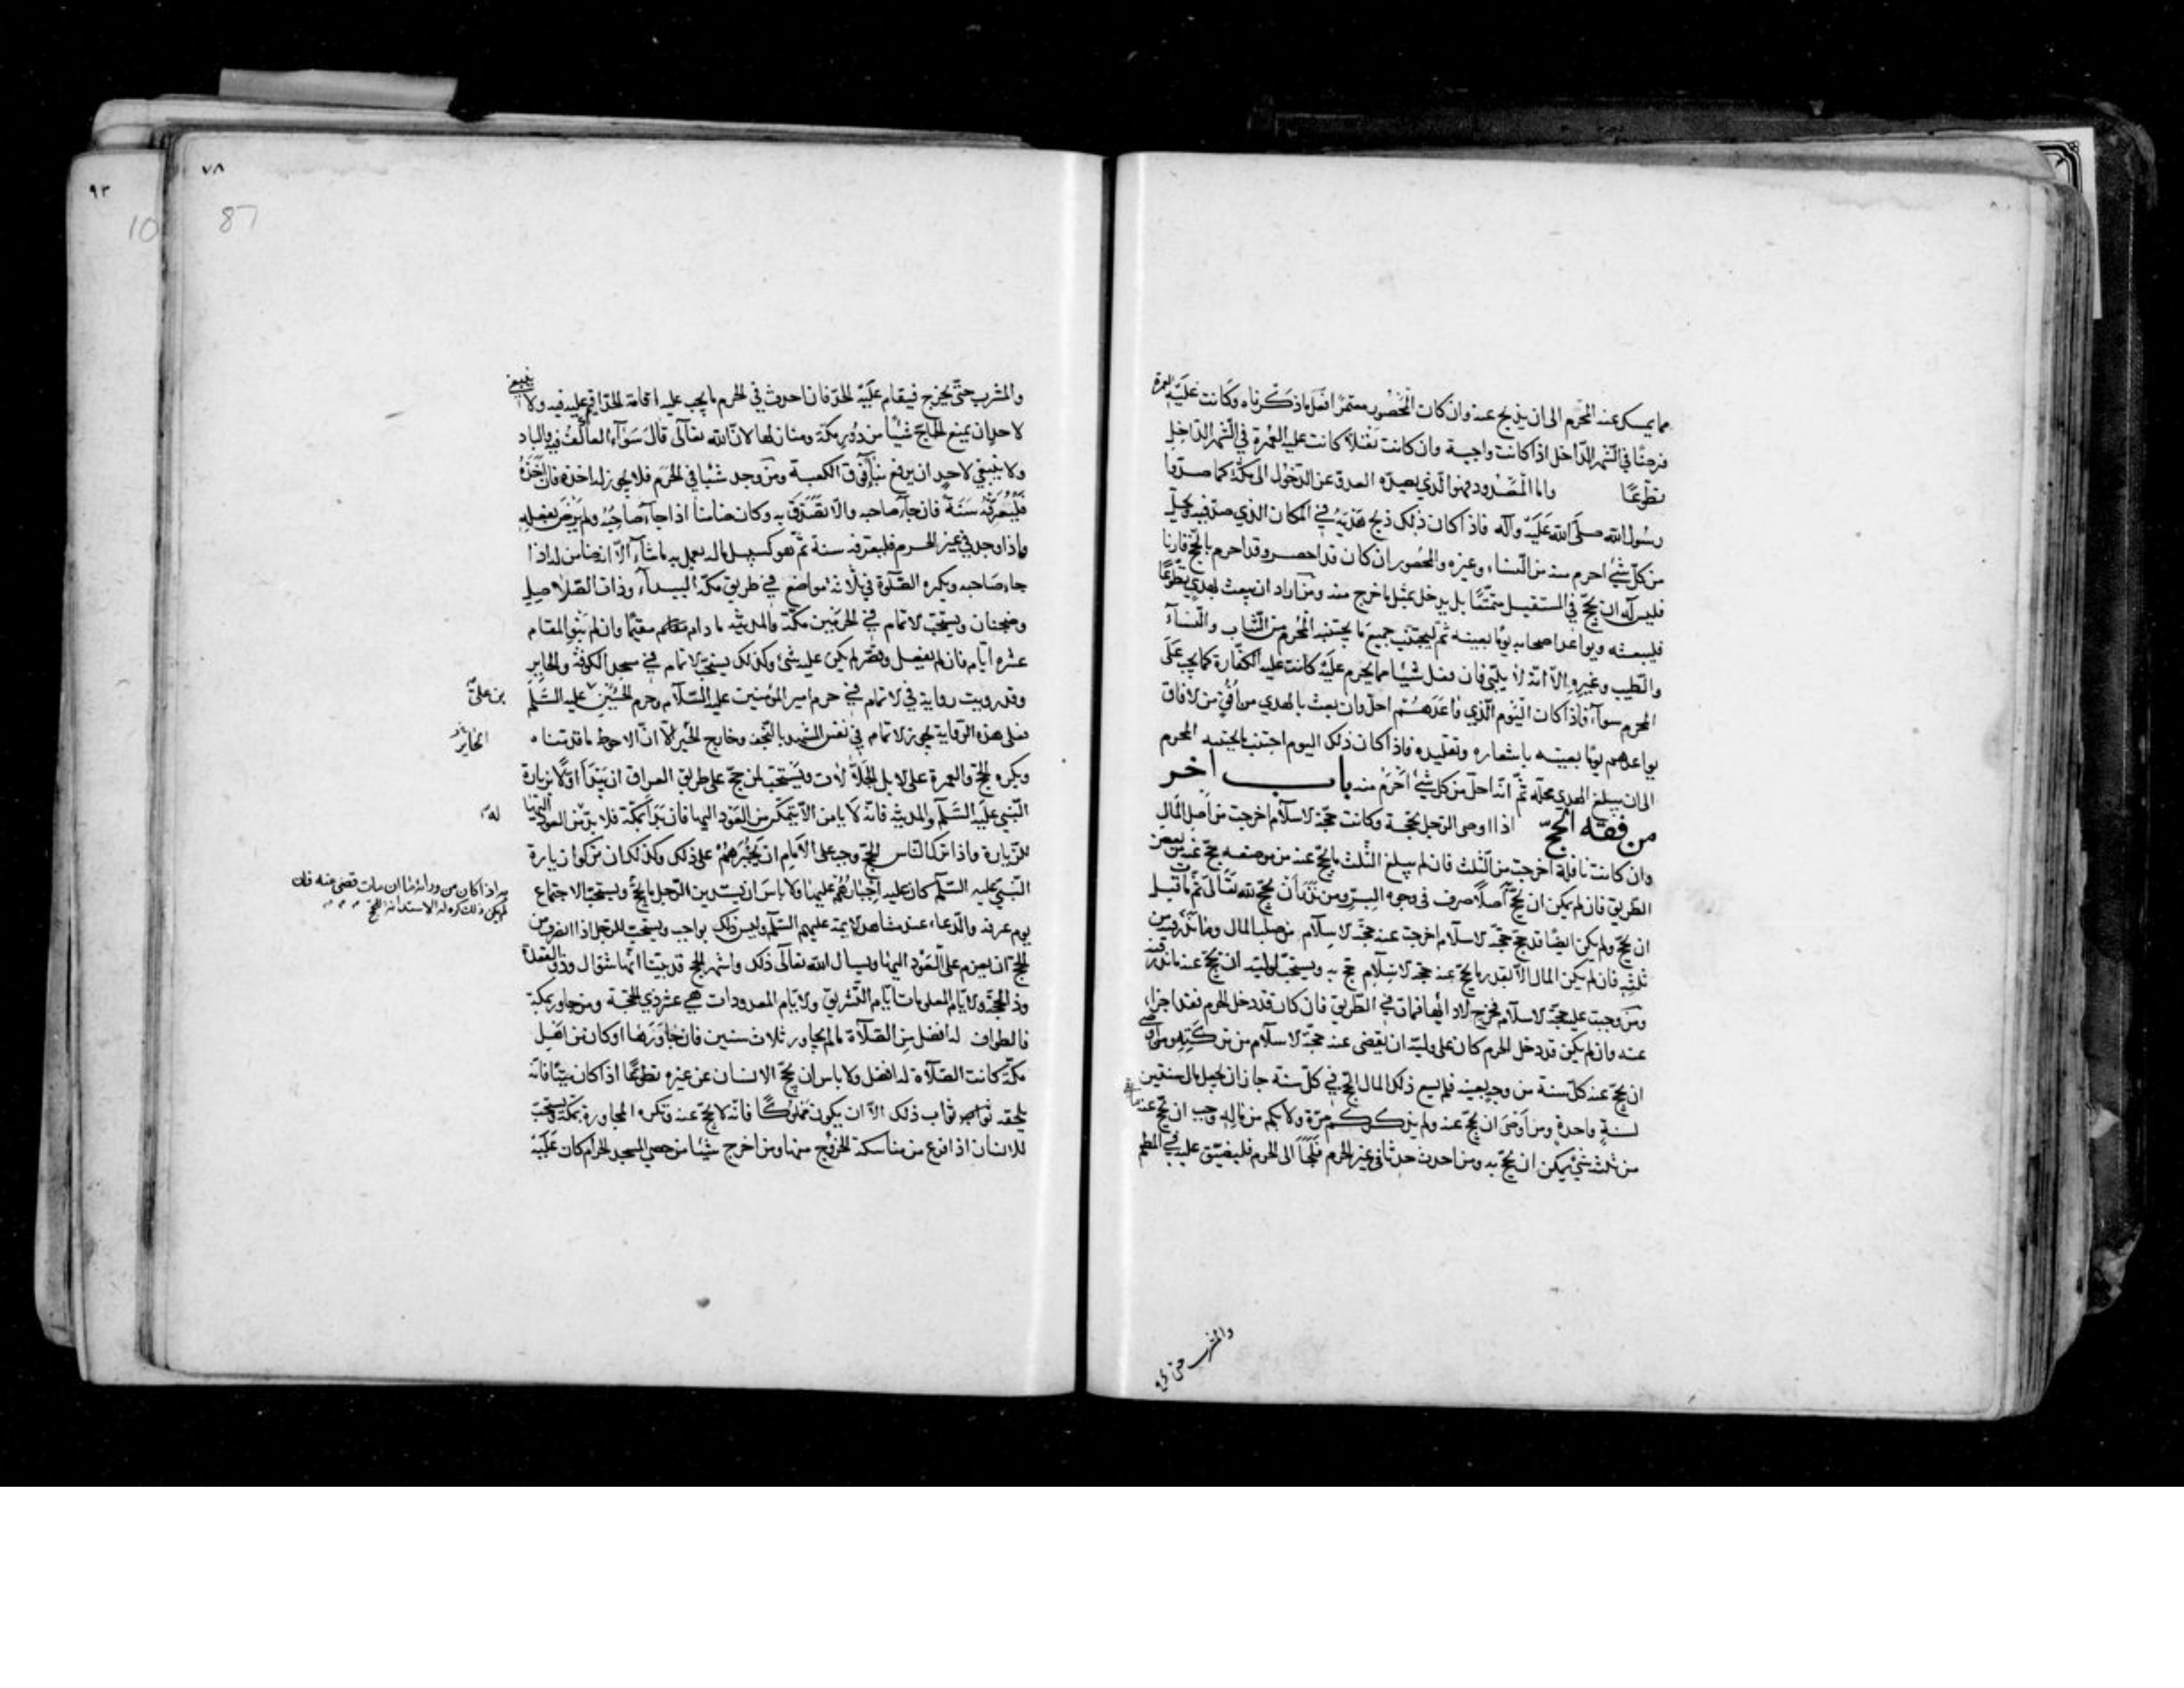 مما يمسك عنه المحرم الى ان يذبح عنه وان كان المحصور معتمرًا فعل ما ذكرناه وكانت عليه العمرة
فرضًا في الشهر الداخل اذا كانت واجبة وان كانت نفلاً كانت عليه العمرة في الشهر الداخل
تطوعًا واما المصدود فهو الذي يصده العدو عن الدخول الى مكة كما صدوا
رسول الله صلى الله عليه وآله فاذا كان ذلك ذبح هديه في المكان الذي صد فيه ويحل
من كل شيء احرم منه من النساء وغيره والمحصور ان كان قد احصر وقد احرم بالحج قارنا
فليس له ان يحج في المستقبل متمتعًا بل يدخل بمثل ما خرج منه ومن اراد ان يبعث بهدي تطوعًا
فليبعثه ويواعد اصحابه يومًا بعينه ثم ليجتنب جميع ما يجتنبه المحرم من الثياب والنساء
والطيب وغيره الا انه لا يلبي فان فعل شيئا مما يحرم عليه كانت عليه الكفارة كما يجب على
المحرم سواء فاذا كان اليوم الذي واعدهم احل وان بعث بالهدي من افق من لافاق
يواعدهم يومًا بعينه باشعاره وتقليده فاذا كان ذلك اليوم اجتنب ما يجتنبه المحرم
الى ان يبلغ الهدي محله ثم انه احل من كل شيء احرم منه باب اخر
من فقه الحج اذا اوصى الرجل بحجة وكانت حجة لاسلام اخرجت من اصل المال
وان كانت نافلة اخرجت من الثلث فان لم يبلغ الثلث ما يحج عنه من موضعه حج عنه من بعض
الطريق فان لم يمكن ان يحج اصلاً صرف في وجوه البر ومن نذر ان يحج لله تعالى ثم مات قبل
ان يحج ولم يكن ايضًا قد حج حجة لاسلام اخرجت عنه حجة لاسلام من صلب المال وما نذره من
ثلثه فان لم يكن المال الا بقدر ما يحج عنه حجة لاسلام حج به ويستحب لوليه ان يحج عنه ما نذر فيه
ومن وجبت عليه حجة لاسلام فخرج لادائها فمات في الطريق فان كان قد دخل الحرم فقد اجزأ
عنه وان لم يكن قد دخل الحرم كان على وليه ان يقضي عنه حجة لاسلام من تركته ومن اوصى
ان يحج عنه كل سنة من وجه بعينه فلم يسع ذلك المال الحج في كل سنة جاز ان يجعل مال سنتين
لسنة واحدة ومن اوصى ان يحج عنه ولم يذكر كم مرة ولا بكم من ماله وجب ان يحج عنه ما بقي
من ثلثه شيء يمكن ان يحج به ومن احدث حدثا في غير الحرم فلجأ الى الحرم فليضيق عليه في المطعم
والمشرب حتى يخرج
٧٨
87
٩٣
10
والمشرب حتى يخرج فيقام عليه الحد فان احدث في الحرم ما يجب عليه اقامة الحد اقيم عليه فيه ولا ينبغي
لاحد ان يمنع الحاج شيئًا من دور مكة ومنازلها لان الله تعالى قال سواء العاكف فيه والباد
ولا ينبغي لاحد ان يرفع بناء فوق الكعبة ومن وجد شيئا في الحرم فلا يجوز له اخذه فان اخذه
فليعرفه سنة فان جاء صاحبه والا تصدق به وكان ضامنا اذا جاء صاحبه ولم يرض بفعله
واذا وجد في غير الحرم فليعرفه سنة ثم هو كسبيل ماله يعمل به ما شاء الا انه ضامن له اذا
جاء صاحبه ويكره الصلوة في ثلاثة مواضع في طريق مكة البيداء وذات الصلاصل
وضجنان ويستحب لاتمام في الحرمين مكة والمدينة ما دام مقيمًا وان لم ينو المقام
عشرة ايام فان لم يفعل وقصر لم يكن عليه شيء وكذلك يستحب لاتمام في مسجد الكوفة والحاير
وقد رويت رواية في لاتمام في حرم امير المؤمنين عليه السلام وحرم الحسين عليه السلم
بن علي
فعلى هذه الرواية يجوز لاتمام في نفس المشهد بالنجف وخارج الحير الا ان الاحوط ما قدمناه
الحاير
ويكره الحج والعمرة على لابل الجلالات ويستحب لمن حج على طريق العراق ان يبدأ اولا بزيارة
النبي عليه السلم والمدينة فانه لا يامن الا يتمكن من العود اليها فان بدأ بمكة فلا بد من العود اليها
له
للزيارة واذا ترك الناس الحج وجب على الامام ان يجبرهم على ذلك وكذلك ان تركوا زيارة
النبي عليه السلم كان عليه اجبارهم عليها ولا باس ان يستدين الرجل ما يحج ويستحب الاجتماع
به اذا كان من ورائه ما ان مات قضي عنه فان
لم يكن ذلك كره له الاستدانة للحج
يوم عرفة والدعاء عند مشاهد لايمة عليهم السلم وليس ذلك بواجب ويستحب للرجل اذا انصرف من
الحج ان يعزم على العود اليها ويسال الله تعالى ذلك واشهر الحج قد بينا انها شوال وذو القعدة
وذو الحجة ولايام المعلومات ايام التشريق ولايام المعدودات هي عشر ذي الحجة ومن جاور بمكة
فالطواف له افضل من الصلاة ما لم يجاور ثلاث سنين فان جاوزها او كان من اهل
مكة كانت الصلاة له افضل ولا باس ان يحج الانسان عن غيره تطوعًا اذا كان ميتًا فانه
يلحقه ثواب ذلك الا ان يكون مملوكًا فانه لا يحج عنه وتكره المجاورة بمكة ويستحب
للانسان اذا فرغ من مناسكه الخروج منها ومن اخرج شيئا من حصى المسجد الحرام كان عليه